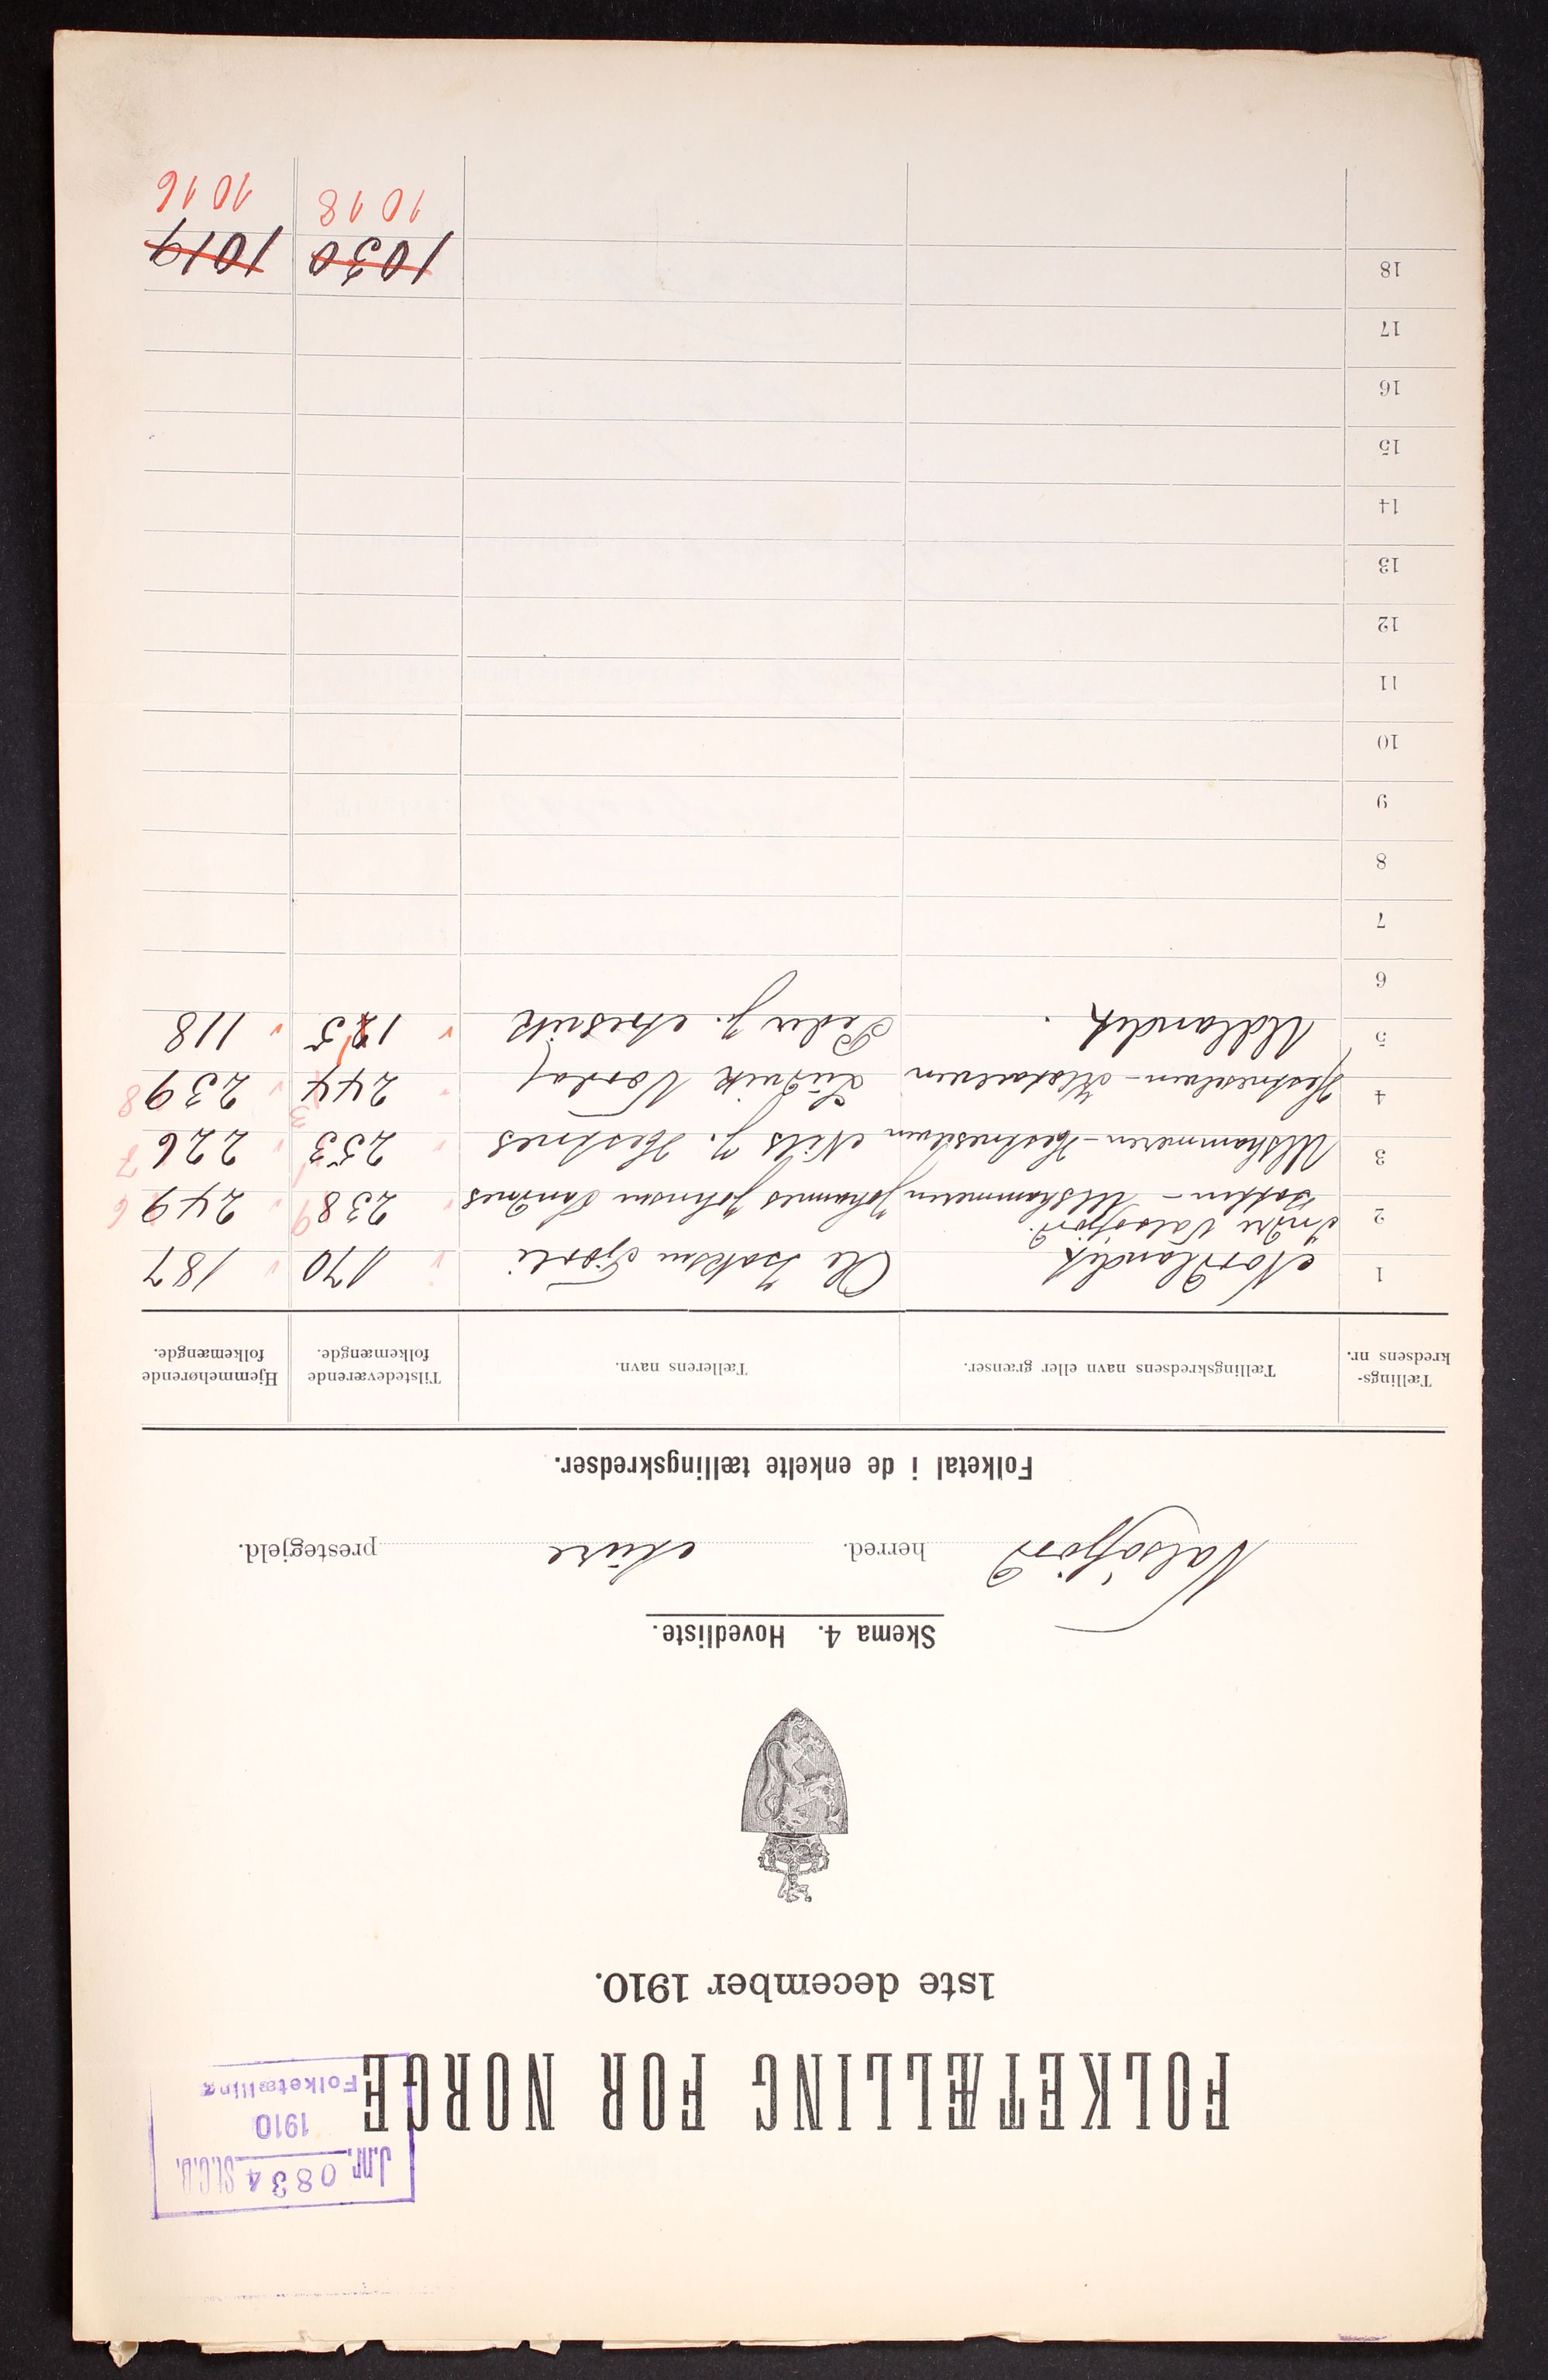 J.nr. 0834 St.C.B.
1910
Folketælling
FOLKETÆLLING FOR NORGE
1ste december 1910.
Skema 4. Hovedliste.
Valsøfjord herred. Aure prestegjeld.
Folketal i de enkelte tællingskredser.
Tællings-kredsens nr. Tællingskredsens navn eller grænser. Tællerens navn. Tilstedeværende folkemængde. Hjemmehørende folkemængde.
1 Nordlandet Ole Isaksen Fjørli 170 187
2 Indre Valsøfjord. Botten - Ulvhammeren Johannes Johnsen Sandnes 238 9 249 6
3 Ulvhammeren - Hestneselven Nils J. Hestnes 253 226 7
4 Hestneselven - Ludvik Vaslag 244 3 239 8
5 Udlandet. Peder J. 125 118
6
7
8
9
10
11
12
13
14
15
16
17
18
1030 1019
1018 1016